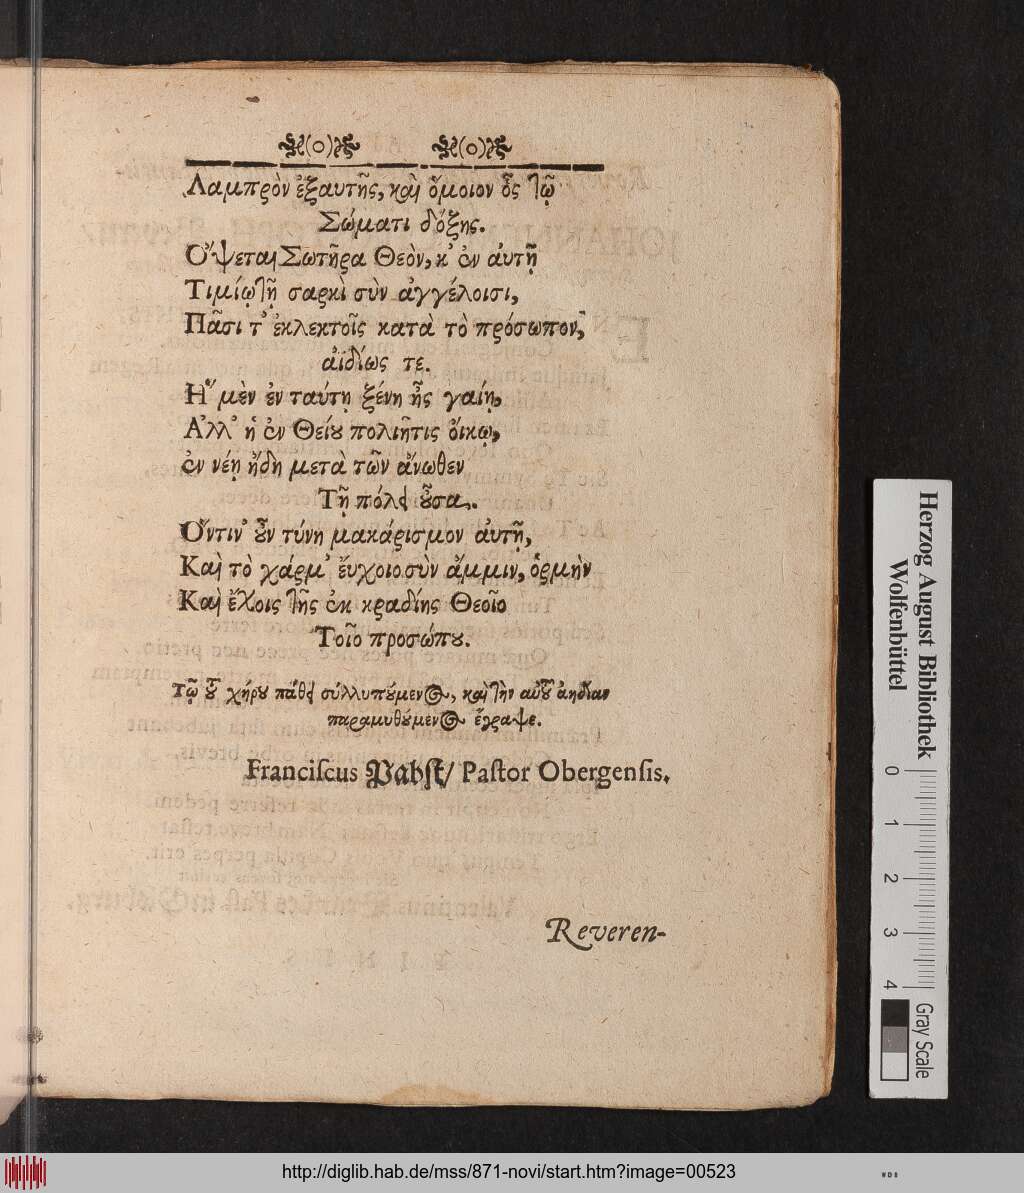 Λαμπρὸν ἐξαυτῆς, καὶ ὅμοιον ὃς τῷ
Σώματι δόξης.
Ὄψεται Σωτῆρα Θεὸν, κ' ἐν αὐτῇ
Τιμίῳ τῇ σαρκὶ σὺν ἀγγέλοισι,
Πᾶσι τ' ἐκλεκτοῖς κατὰ τὸ πρόσωπον,
αἰδίως τε.
Ἣ μὲν ἐν ταύτῃ ξένη ἦς γαίῃ,
Ἀλλ' ἡ ἐν Θείου πολιῆτις οἴκῳ,
ἐν νέῃ ἤδη μετὰ τῶν ἄνωθεν
Τῇ πόλει οὖσα.
Ὅντιν' οὖν τύνη μακάρισμον αὐτῇ,
Καὶ τὸ χάρμ' εὔχοιο σὺν ἄμμιν, ὁρμὴν
Καὶ ἔχοις τῆς ἐκ κραδίης Θεοῖο
Τοῖο προσώπου.
Τῷ τοῦ χήρου πάθει συλλυπούμενος, καὶ τὴν αὐτοῦ ἀηδίαν
παραμυθούμενος ἔγραψε.
Franciscus Pabst/ Pastor Obergensis.
Reveren-
Herzog August Bibliothek
Wolfenbüttel
0 1 2 3 4
Gray Scale
http://diglib.hab.de/mss/871-novi/start.htm?image=00523